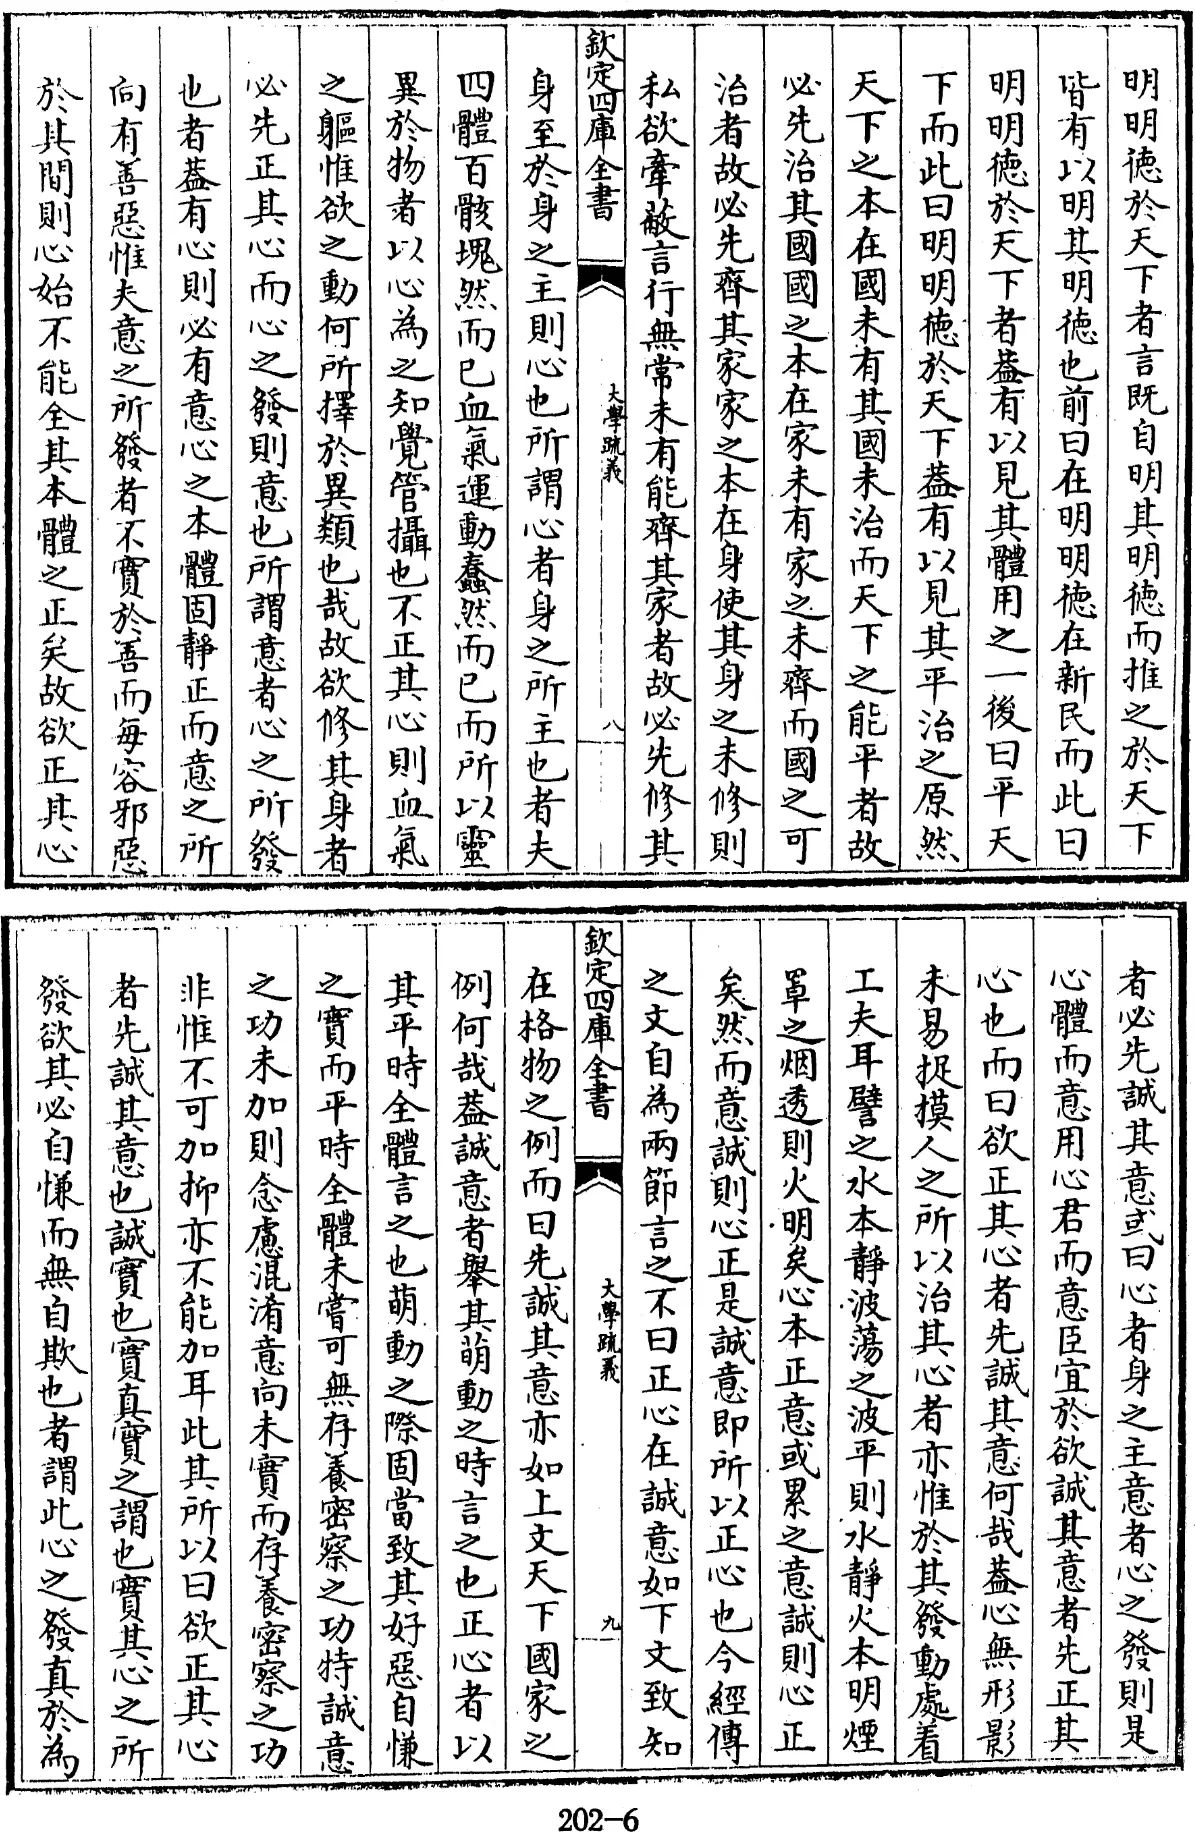 明明德於天下者言既自明其明德而推之於天下
皆有以明其明德也前曰在明明德在新民而此曰
明明德於天下者葢有以見其體用之一後曰平天
下而此曰明明德於天下葢有以見其平治之原然
天下之本在國未有其國未治而天下之能平者故
必先治其國國之本在家未有家之未齊而國之可
治者故必先齊其家家之本在身使其身之未修則
私欲牽蔽言行無常未有能齊其家者故必先修其
欽定四庫全書
大學疏義
八
身至於身之主則心也所謂心者身之所主也者夫
四體百骸塊然而已血氣運動蠢然而已而所以靈
異於物者以心為之知覺管攝也不正其心則血氣
之軀惟欲之動何所擇於異類也哉故欲修其身者
必先正其心而心之發則意也所謂意者心之所發
也者葢有心則必有意心之本體固靜正而意之所
向有善惡惟夫意之所發者不實於善而每容邪惡
於其間則心始不能全其本體之正矣故欲正其心
者必先誠其意或曰心者身之主意者心之發則是
心體而意用心君而意臣宜於欲誠其意者先正其
心也而曰欲正其心者先誠其意何哉葢心無形影
未易捉摸人之所以治其心者亦惟於其發動處着
工夫耳譬之水本靜波蕩之波平則水靜火本明煙
罩之烟透則火明矣心本正意或累之意誠則心正
矣然而意誠則心正是誠意即所以正心也今經傳
之文自為兩節言之不曰正心在誠意如下文致知
欽定四庫全書
大學疏義
九
在格物之例而曰先誠其意亦如上文天下國家之
例何哉葢誠意者舉其萌動之時言之也正心者以
其平時全體言之也萌動之際固當致其好惡自慊
之實而平時全體未嘗可無存養密察之功特誠意
之功未加則念慮混淆意向未實而存養密察之功
非惟不可加抑亦不能加耳此其所以曰欲正其心
者先誠其意也誠實也實真實之謂也實其心之所
發欲其必自慊而無自欺也者謂此心之發真於為
202-6